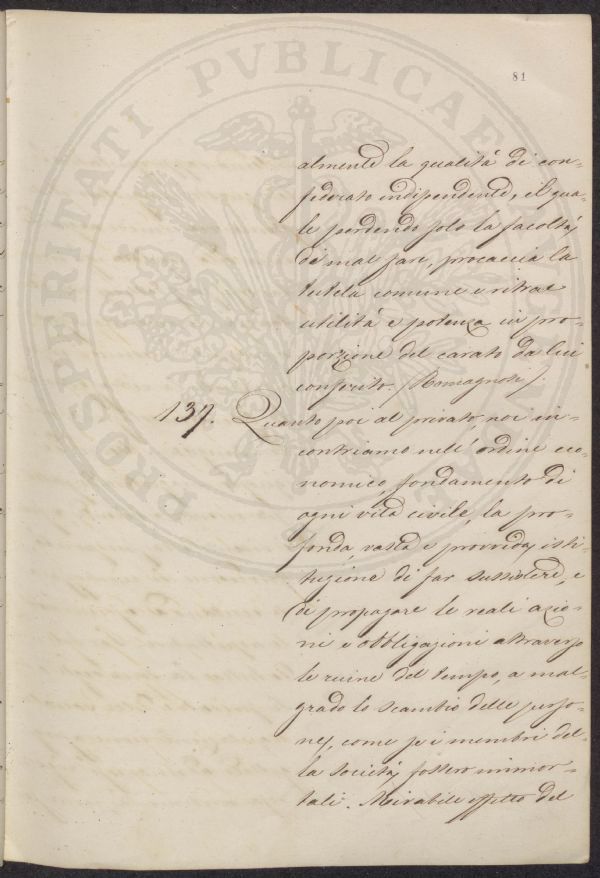 81
almente la qualità di con-
federato indipendente, il qua-
le perdendo solo la facoltà
di mal fare, procaccia la
tutela comune e ritrae
utilità e potenza in pro-
porzione del carato da lui
conferito. (Romagnosi).
137. Quanto poi al privato noi in-
contriamo nell'ordine eco-
nomico, fondamento di
ogni vita civile, la pro-
fonda, vasta e provvida isti-
tuzione di far sussistere, e
di propagare le reali azio-
ni e obbligazioni attraverso
le ruine del tempo, a mal-
grado lo scambio delle perso-
ne, come se i membri del-
la società fossero immor-
tali. Mirabile effetto del
PROSPERITATI PVBLICAE